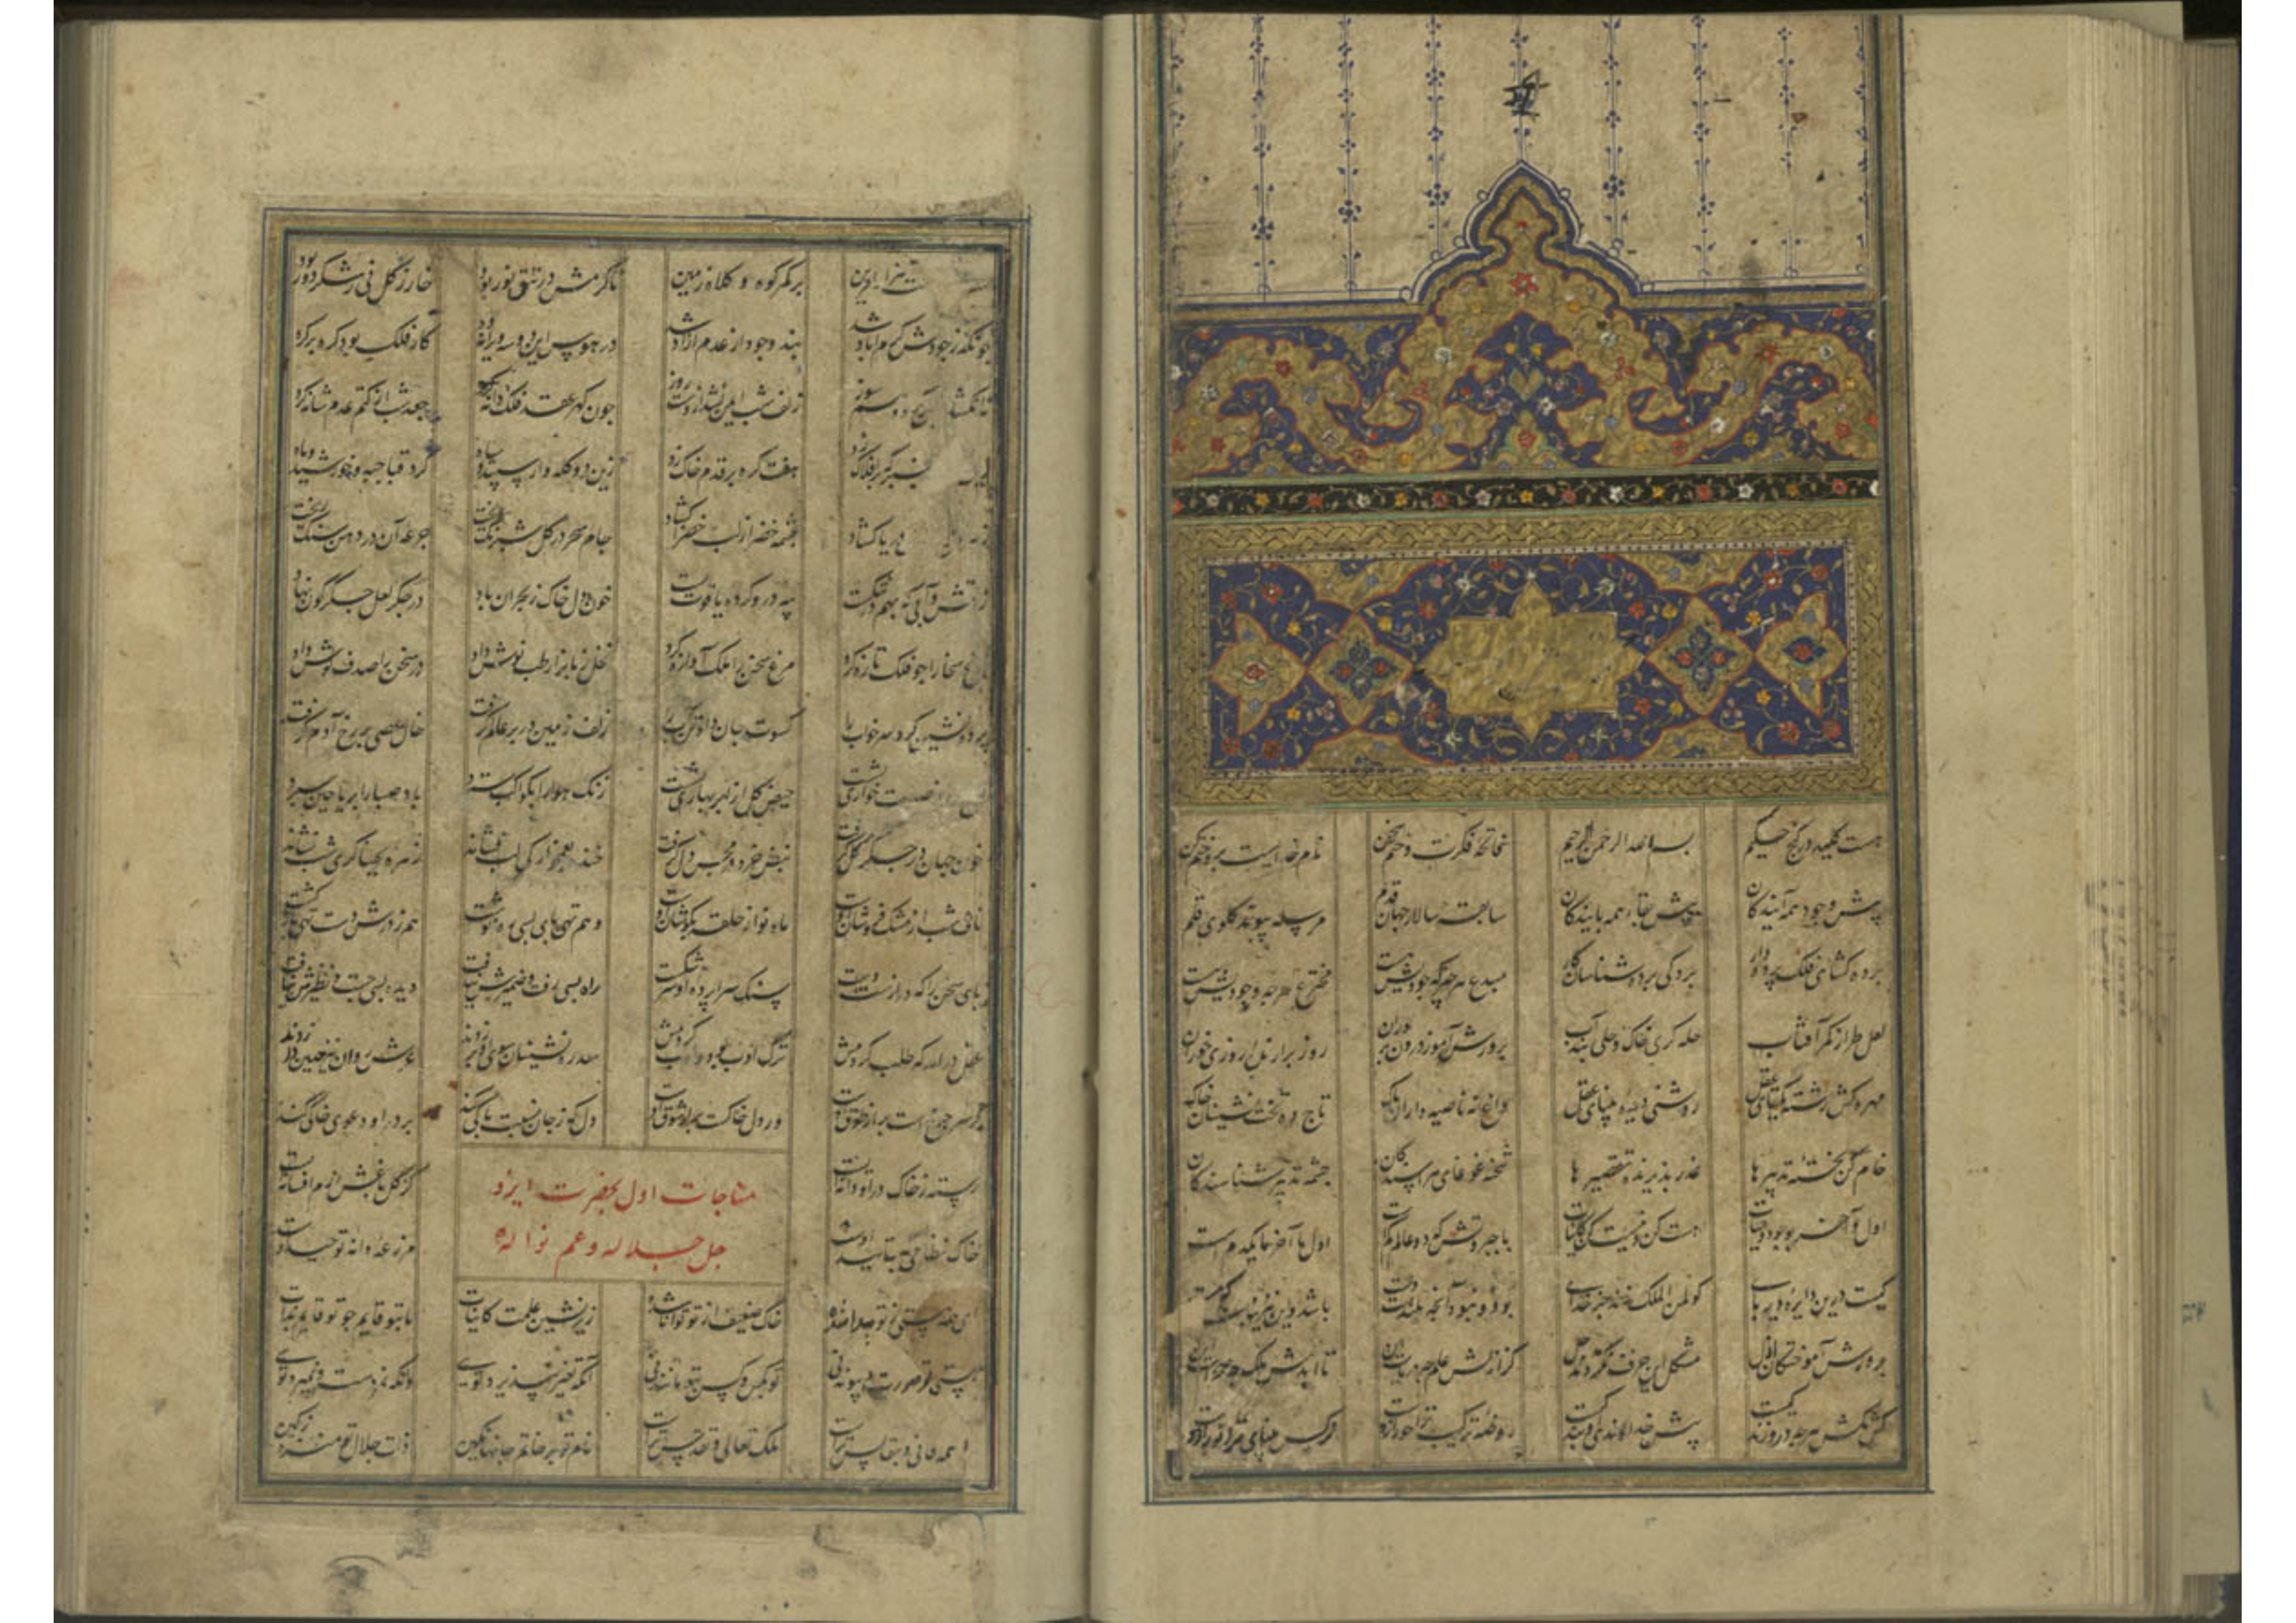 هست کلید در کنج حکیم بسم الله الرحمن الرحیم فاتحه فکرت و ختم سخن نام خدایست برو ختم کن
پیش وجود همه آیندکان پیش بقاء همه پایندکان سابقه سالار جهان قدم مرسله پیوند کلوی قلم
پرده کشای فلک پرده دار پردکی پرده شناسان کار مبدع هر چشمه که جودیش هست مخترع هر چه وجودیش هست
لعل طراز کمر آفتاب حله کر خاک و حلی بند آب پرورش آموز درون پروران روز برارنده روزی خوران
مهره کش رشته یکتای عقل روشنی دیده بینای عقل داغ نه ناصیه داران پاک تاج ده تخت نشینان خاک
خام کن پخته تدبیرها عذر پذیرنده تقصیرها شحنه غوغای هراسندکان چشمه تدبیر شناسندکان
اول و آخر بوجود و حیات هست کن و نیست کن کاینات با جبروتش که دو عالم کمست اول ما آخر ما یکدمست
کیست درین دایره دیر پای کو لمن الملک زند جز خدای بود و نبود آنچه بلندست و پست باشد و این نیز نباشد که هست
پرورش آموختکان ازل مشکل این حرف نکردند حل کز ازلش علم چه دریاست این تا ابدش ملک چه صحراست این
کش مکش هر چه درو زندکیست پیش خداوندی او بندکیست روضه ترکیب ترا حور ازوست نرکس بینای ترا نور ازوست
بر کمر کوه و کلاه زمین تا کرمش در تتق نور بود خار ز کل نی ز شکر دور بود
چونکه ز جودش کرم آباد شد بند وجود از عدم آزاد شد در هوس این دو سه ویرانه ده کار فلک بود کره بر کره
زلف شب ایمن نشد از دست روز چون کهر عقد فلک دانه کرد جعد شب از کتم عدم شانه کرد
هفت کره بر قدم خاک زد زین دو کله وار سپید و سیاه کرد قبا جبه خورشید و ماه
دریا کشاد چشمه خضر از لب خضرا کشاد جام سحر در کل شبرنک ریخت جرعه آن در دهن سنک ریخت
زاتش و آبی که بهم در شکست پیه در و کرده یاقوت بست خون دل خاک ز بحران باد در جکر لعل جکرکون نهاد
باغ سخا را چو فلک تازه کرد مرغ سخن را ملک آوازه کرد نخل زبانرا رطب نوش داد در سخن را صدف کوش داد
پرده نشین کرد سر خواب را کسوت جان داد تن آب را زلف زمین در بر عالم کرفت خال عصی بر رخ آدم کرفت
خواری بشست حیض کل از ابر بهاری بشست زنک هوا را بکواکب سترد باد صبا را بریاحین سپرد
خون جهان در جکر کل کرفت نبض خرد در مجس دل کرفت خنده بغمخوارکی لب نشاند زهره بخنیاکری شب نشاند
ناف شب از مشک فروشان اوست ماه نو از حلقه بکوشان اوست وهم تهی پای بسی ره نوشت هم ز درش دست تهی بازکشت
پای سخن را که درازست دست سنک سراپرده او سر شکست راه بسی رفت و ضمیرش نیافت دیده بسی جست و نظیرش نیافت
عقل درآمد که طلب کردمش ترک ادب بود ادب کردمش سدره نشینان سوی او پر زدند عرش روان نیز همین در زدند
کر سر چرخست پر از طوق اوست ور دل خاکست پر از شوق اوست دل که ز جان نسبت پاکی کند بر در او دعوی خاکی کند
رسته ز خاک در او دانه ایست کز کل باغش ارم افسانه ایست
خاک نظامی که بتایید اوست مزرعه دانه توحید اوست
مناجات اول بحضرت ایزد
جل جلاله و عم نواله
ای همه هستی ز تو پیدا شده خاک ضعیف از تو توانا شده زیر نشین علمت کاینات ما بتو قایم چو تو قایم بذات
هستی تو صورت و پیوند نی تو بکس و کس بتو مانند نی آنکه تغیر نپذیرد توی وانکه نمردست و نمیرد توی
ما همه فانی و بقا بس تراست ملک تعالی و تقدس تراست نام تو بر خاتم جانها نکین ذات جلال تو منزه